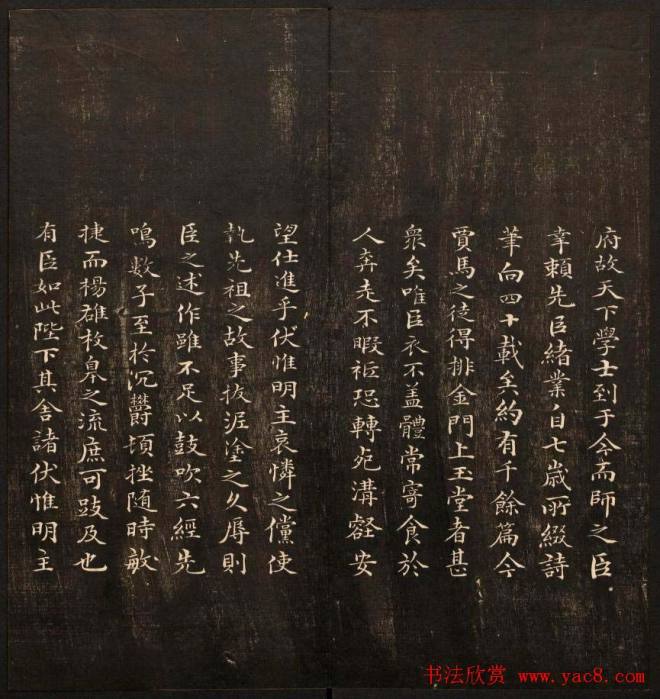 府故天下學士到于今而師之臣
幸賴先臣緒業自七歲所綴詩
筆向四十載矣約有千餘篇今
賈馬之徒得排金門上玉堂者甚
衆矣唯臣衣不盖體常寄食於
人奔走不暇秪恐轉死溝壑安
望仕進乎伏惟明主哀憐之儻使
執先祖之故事拔泥塗之久辱則
臣之述作雖不足以鼓吹六經先
鳴數子至於沉欝頓挫随時敏
捷而楊雄枚皋之流庶可跂及也
有臣如此陛下其舍諸伏惟明主
书法欣赏 www.yac8.com